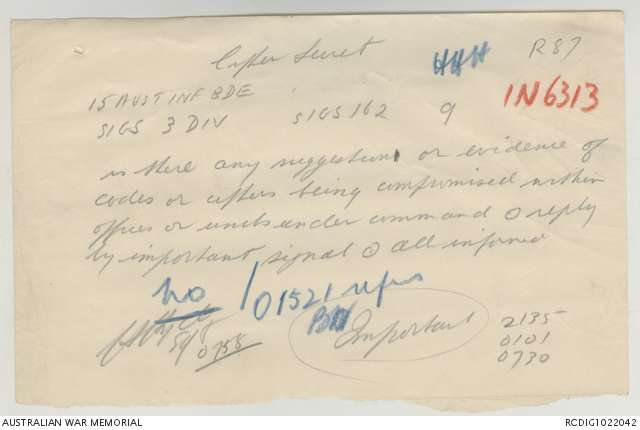 Cipher Secret
HHH
R87
15 AUST INF BDE
IN6313
SIGS 3 DIV SIGS 162 9
is there any suggestion or evidence of
codes or ciphers being compromised within
offices or units under command O reply
by important signal O all informed
no / 01521 refers
BW
Important
2135
0101
0730
5/8
0758
AUSTRALIAN WAR MEMORIAL
RCDIG1022042